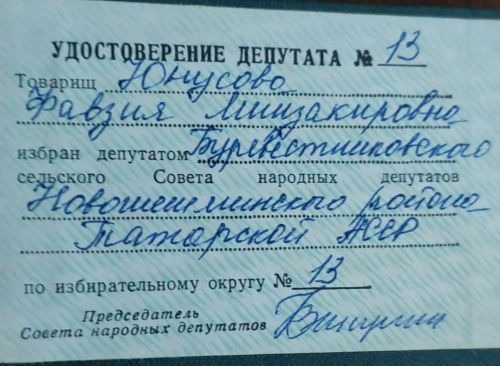 УДОСТОВЕРЕНИЕ ДЕПУТАТА № 13
Товарищ Юнусова
Фавзия Минзакировна
избран депутатом Буревестниковского
сельского Совета народных депутатов
Новошешминского района
Татарской АССР
по избирательному округу № 13
Председатель
Совета народных депутатов